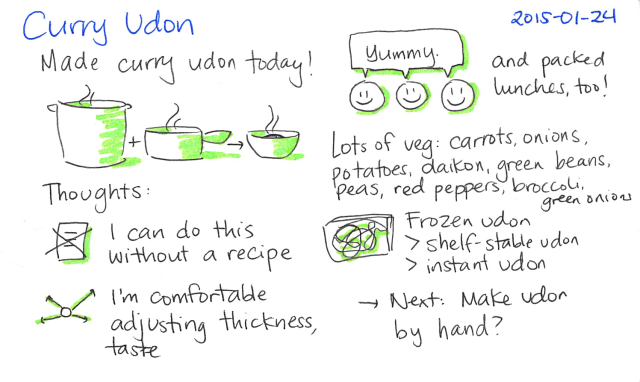 Curry Udon
2015-01-24
Made curry udon today!
Thoughts:
I can do this
without a recipe
I'm comfortable
adjusting thickness,
taste
Yummy.
and packed
lunches, too!
Lots of veg: carrots, onions,
potatoes, daikon, green beans,
peas, red peppers, broccoli,
green onions
Frozen udon
> shelf-stable udon
> instant udon
→ Next: Make udon
by hand?